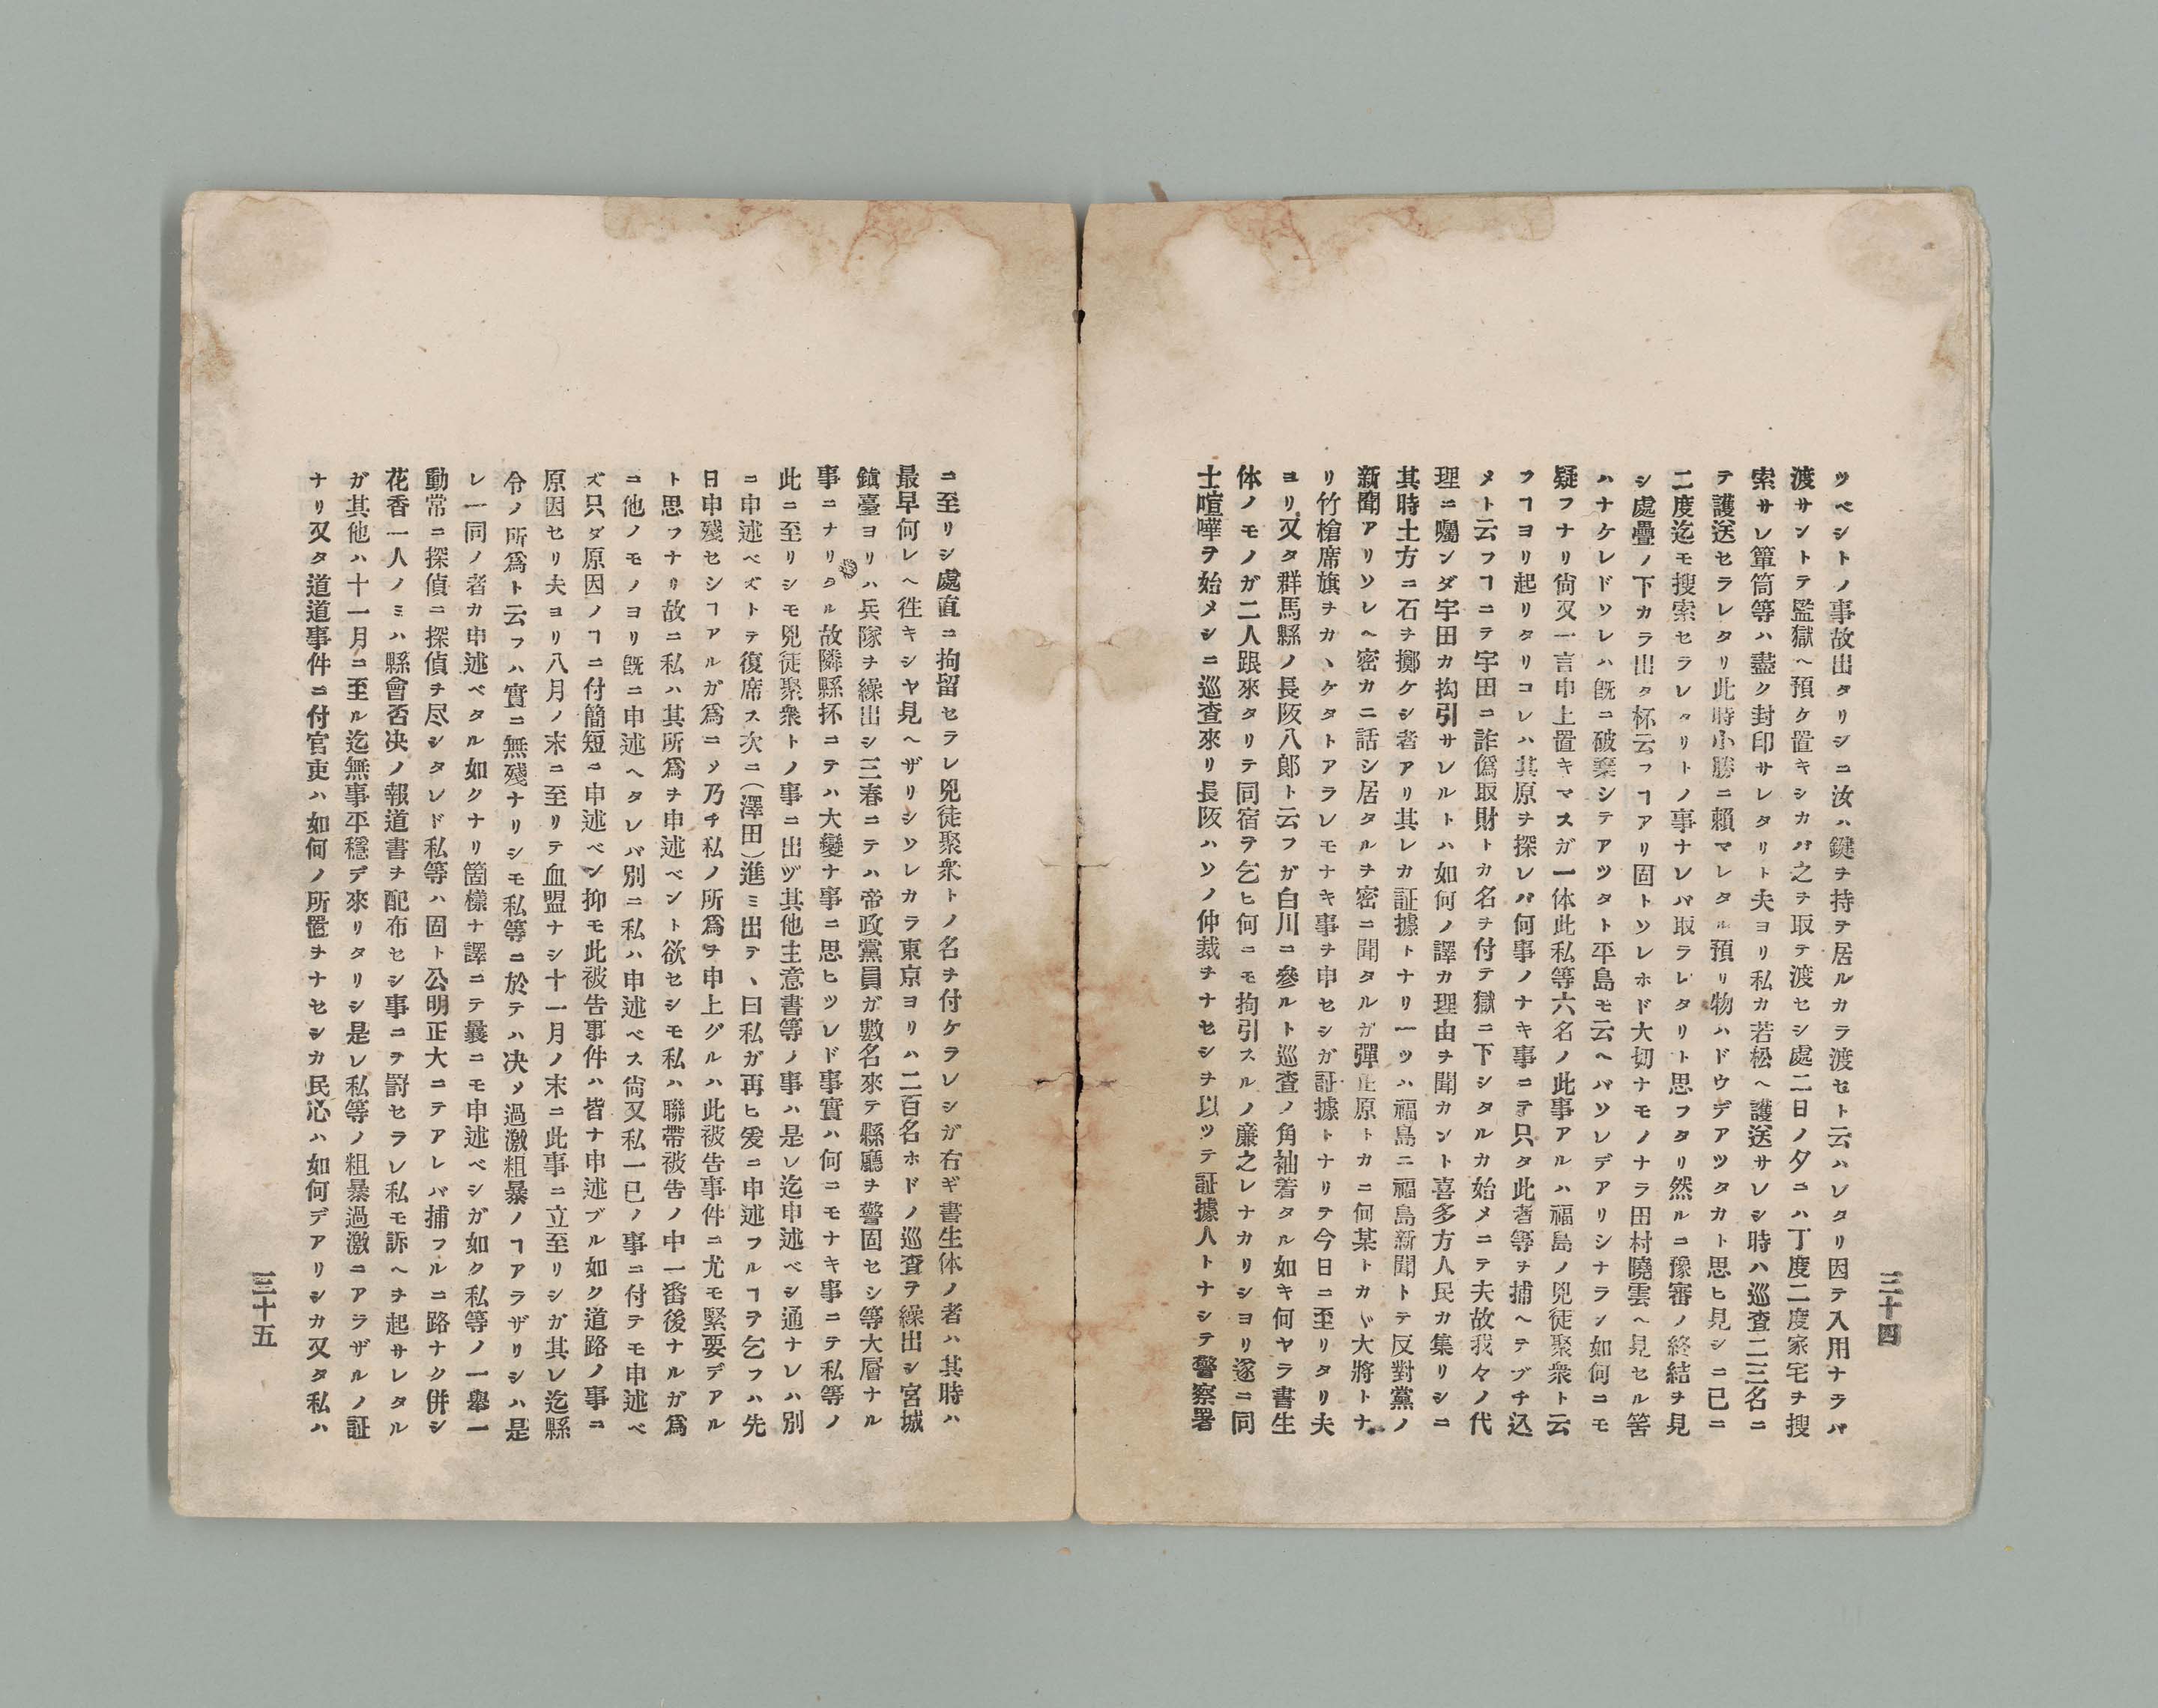 ツベシトノ事故出タリシニ汝ハ鍵ヲ持ヲ居ルカラ渡セト云ハレタリ因テ入用ナラバ
渡サントテ監獄ヘ預ケ置キシカバ之ヲ取テ渡セシ處二日ノ夕ニハ丁度二度家宅ヲ搜
索サレ簞筒等ハ盡ク封印サレタリト夫ヨリ私カ若松ヘ護送サレシ時ハ巡査二三名ニ
テ護送セラレタリ此時小勝ニ賴マレタル預リ物ハドウデアツタカト思ヒ見シニ已ニ
二度迄モ搜索セラレタリトノ事ナレバ取ラレタリト思フタリ然ルニ豫審ノ終結ヲ見
シ處疊ノ下カラ出タ杯云フヿアリ固トソレホド大切ナモノナラ田村曉雲ヘ見セル筈
ハナケレドソレハ旣ニ破棄シテアツタト平島モ云ヘバソレデアリシナラン如何ニモ
疑フナリ尙又一言申上置キマスガ一体此私等六名ノ此事アルハ福島ノ兇徒聚衆ト云
フヿヨリ起リタリコレハ其原ヲ探レバ何事ノナキ事ニテ只タ此者等ヲ捕ヘテブチ込
メト云フヿニテ宇田ニ詐僞取財トカ名ヲ付テ獄ニ下シタルカ始メニテ夫故我々ノ代
理ニ囑ンダ宇田カ拘引サレルトハ如何ノ譯カ理由ヲ聞カント喜多方人民カ集リシニ
其時土方ニ石ヲ擲ケシ者アリ其レカ証據トナリ一ツハ福島ニ福島新聞トテ反對黨ノ
新聞アリソレヘ密カニ話シ居タルヲ密ニ聞タルガ彈正原トカニ何某トカヾ大將トナ
リ竹槍席旗ヲカヽケタトアラレモナキ事ヲ申セシガ証據トナリテ今日ニ至リタリ夫
ヨリ又タ群馬縣ノ長阪八郞ト云フガ白川ニ參ルト巡査ノ角袖着タル如キ何ヤラ書生
体ノモノガ二人跟來タリテ同宿ヲ乞ヒ何ニモ拘引スルノ廉之レナカリシヨリ遂ニ同
士喧嘩ヲ始メシニ巡査來リ長阪ハソノ仲裁ヲナセシヲ以ツテ証據人トナシテ警察署
三十四
ニ至リシ處直ニ拘留セラレ兇徒聚衆トノ名ヲ付ケラレシガ右ギ書生体ノ者ハ其時ハ
最早何レヘ徃キシヤ見ヘザリシソレカラ東京ヨリハ二百名ホドノ巡査ヲ繰出シ宮城
鎭臺ヨリハ兵隊ヲ繰出シ三春ニテハ帝政黨員ガ數名來テ縣廳ヲ警固セシ等大層ナル
事ニナリタル故隣縣抔ニテハ大變ナ事ニ思ヒツレド事實ハ何ニモナキ事ニテ私等ノ
此ニ至リシモ兇徒聚衆トノ事ニ出ヅ其他主意書等ノ事ハ是レ迄申述ベシ通ナレハ別
ニ申述ベズトテ復席ス次ニ(澤田)進ミ出テ、曰私ガ再ヒ爰ニ申述フルヿヲ乞フハ先
日申殘セシヿアルガ爲ニソ乃チ私ノ所爲ヲ申上グルハ此被告事件ニ尤モ緊要デアル
ト思フナリ故ニ私ハ其所爲ヲ申述ベント欲セシモ私ハ聯帶被吿ノ中一番後ナルガ爲
ニ他ノモノヨリ旣ニ申述ヘタレバ別ニ私ハ申述ベス尙又私一已ノ事ニ付テモ申述ベ
ズ只ダ原因ノヿニ付簡短ニ申述ベン抑モ此被告事件ハ皆ナ申述ブル如ク道路ノ事ニ
原因セリ夫ヨリ八月ノ末ニ至リテ血盟ナシ十一月ノ末ニ此事ニ立至リシガ其レ迄縣
令ノ所爲ト云フハ實ニ無殘ナリシモ私等ニ於テハ决メ過激粗暴ノヿアラザリシハ是
レ一同ノ者カ申述ベタル如クナリ箇樣ナ譯ニテ曩ニモ申述ベシガ如ク私等ノ一擧一
動常ニ探偵ニ探偵ヲ尽シタレド私等ハ固ト公明正大ニテアレバ捕フルニ路ナク併シ
花香一人ノミハ縣會否决ノ報道書ヲ配布セシ事ニテ罰セラレ私モ訴ヘヲ起サレタル
ガ其他ハ十一月ニ至ル迄無事平穩デ來リタリシ是レ私等ノ粗暴過激ニアラザルノ証
ナリ又タ道道事件ニ付官吏ハ如何ノ所置ヲナセシカ民心ハ如何デアリシカ又タ私ハ
三十五